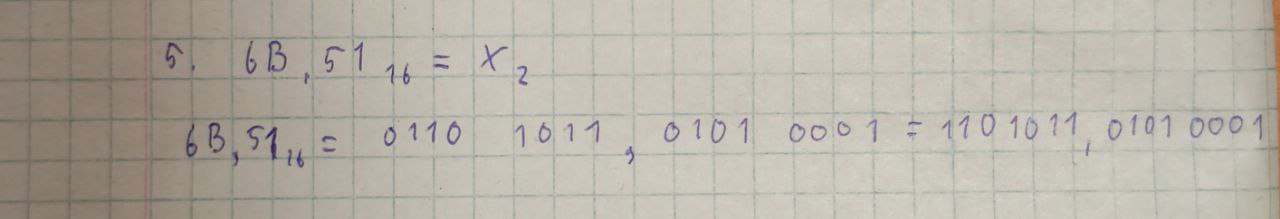 5. 6B,51₁₆ = X₂
6B,51₁₆ = 0110 1011, 0101 0001 = 1101011, 0101 0001